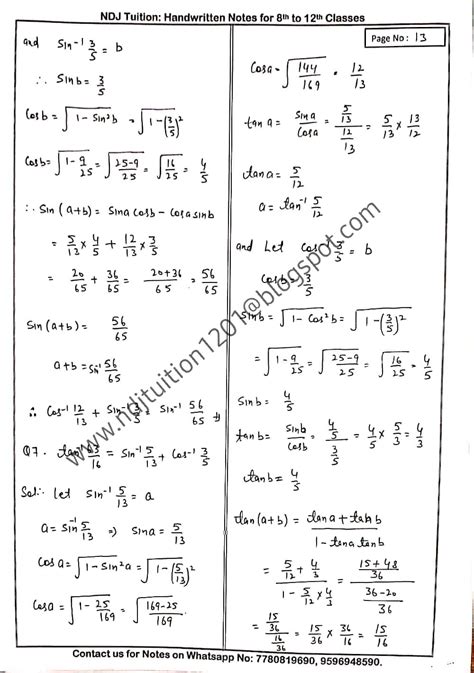 NDJ Tuition: Handwritten Notes for 8th to 12th Classes
and Sin⁻¹ 3/5 = b
∴ Sinb = 3/5
Cosb = √(1 - Sin²b) = √(1-(3/5)²)
Cosb = √(1-9/25) = √((25-9)/25) = √(16/25) = 4/5
∴ Sin (a+b) = Sina Cosb - Cosa sinb
= 5/13 × 4/5 + 12/13 × 3/5
= 20/65 + 36/65 = (20+36)/65 = 56/65
Sin (a+b) = 56/65
a+b = Sin⁻¹ 56/65
∴ Cos⁻¹ 12/13 + Sin⁻¹ 3/5 = Sin⁻¹ 56/65
Q7. tan⁻¹ 63/16 = Sin⁻¹ 5/13 + Cos⁻¹ 3/5
Sol:- let Sin⁻¹ 5/13 = a
a = Sin⁻¹ 5/13 ⇒ Sina = 5/13
Cosa = √(1-Sin²a) = √(1-(5/13)²)
Cosa = √(1-25/169) = √((169-25)/169)
Page No: 13
Cosa = √(144/169) = 12/13
tan a = Sina/Cosa = (5/13)/(12/13) = 5/13 × 13/12
tana = 5/12
a = tan⁻¹ 5/12
and Let Cos⁻¹ 3/5 = b
Cosb = 3/5
Sinb = √(1-Cos²b) = √(1-(3/5)²)
= √(1-9/25) = √((25-9)/25) = √(16/25) = 4/5
Sinb = 4/5
tanb = Sinb/Cosb = (4/5)/(3/5) = 4/5 × 5/3 = 4/3
tanb = 4/5
tan(a+b) = (tana + tanb)/(1 - tana tanb)
= (5/12 + 4/3)/(1 - 5/12 × 4/3) = ((15+48)/36)/((36-20)/36)
= (15/36)/(16/36) = 15/36 × 36/16 = 15/16
www.ndjtuition1201@blogspot.com
Contact us for Notes on Whatsapp No: 7780819690, 9596948590.